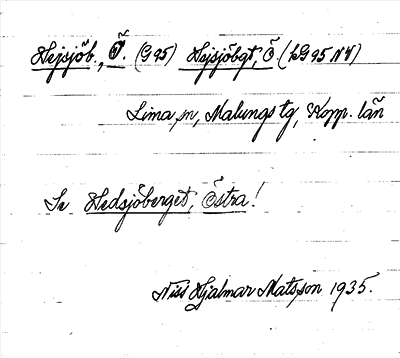 Hejsjöb., Ö. (G 95) Hejsjöbgt, Ö (LG 95 NV)
Lima sn, Malungs tg, Kopp. län
Se Hedsjöberget, Östra!
Niss Hjalmar Matsson 1935.